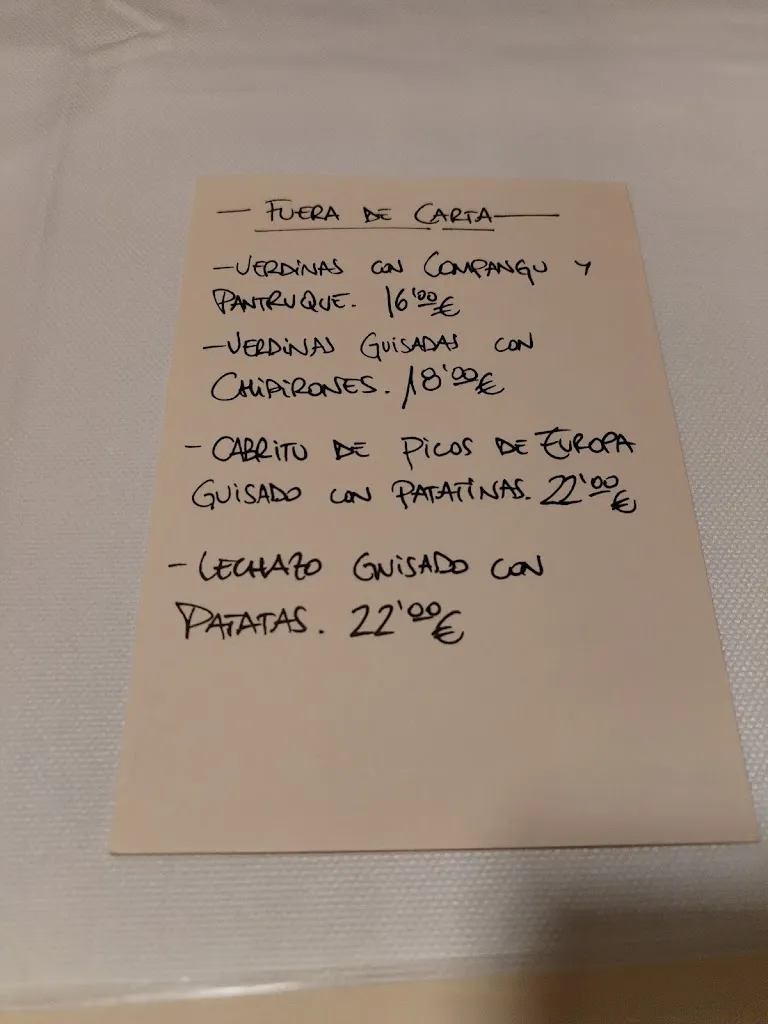 — FUERA DE CARTA —
- VERDINAS CON COMPANGU Y
PANTRUQUE. 16'00€
- VERDINAS GUISADAS CON
CHIPIRONES. 18'00€
- CABRITU DE PICOS DE EUROPA
GUISADO CON PATATINAS. 22'00€
- LECHAZO GUISADO CON
PATATAS. 22'00€